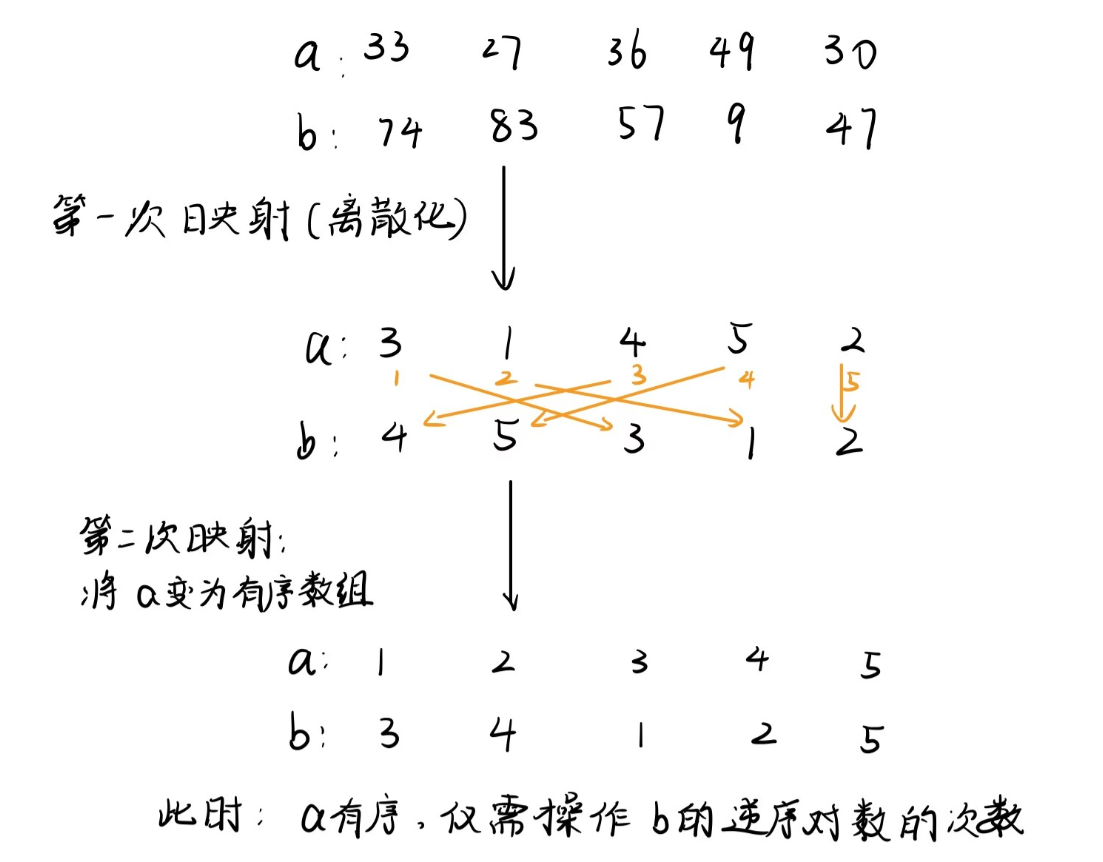 a: 33 27 36 49 30
b: 74 83 57 9 47
第一次映射(离散化)
a: 3 1 4 5 2
1 2 3 4 5
b: 4 5 3 1 2
第二次映射:
将a变为有序数组
a: 1 2 3 4 5
b: 3 4 1 2 5
此时: a有序,仅需操作b的逆序对数的次数